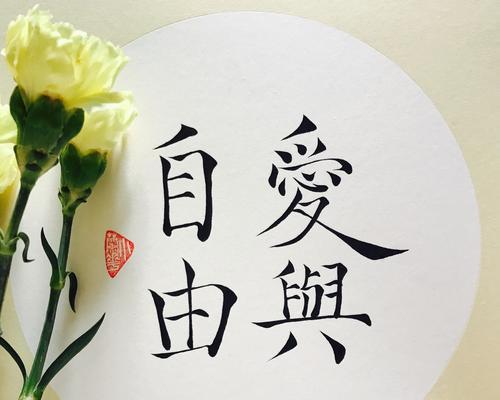 愛與
自由